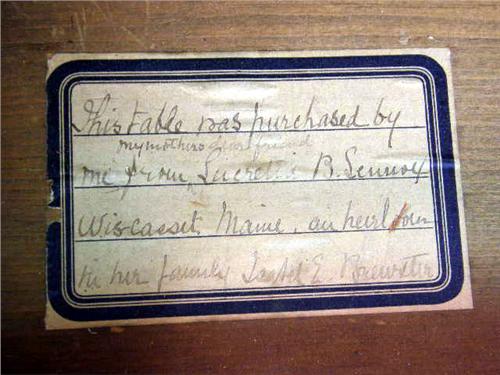 This table was purchased by
my mothers dear friend
me from Lucretia B. Lennox
Wiscasset, Maine, an heirloom
in her family Isabel E Brewster